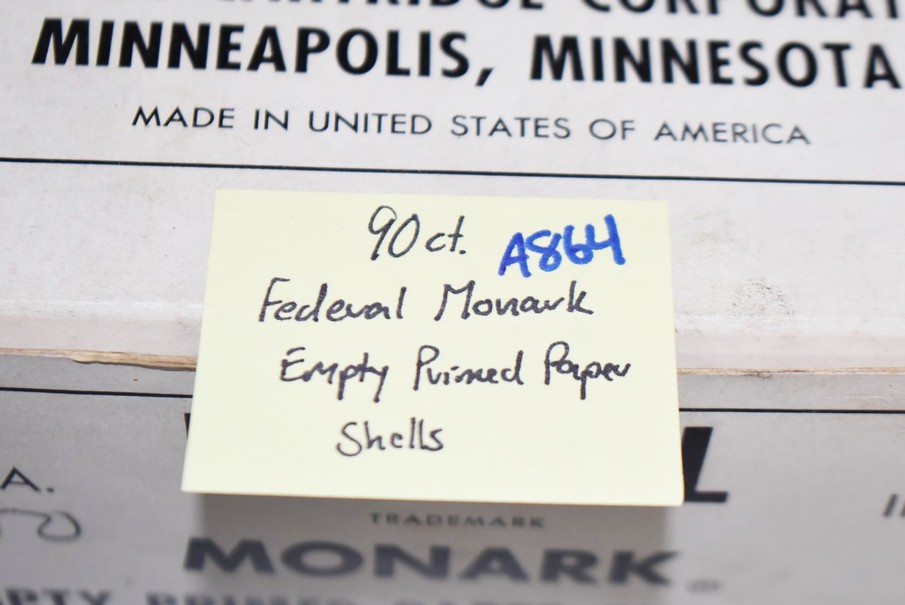 CARTRIDGE CORPORAT
MINNEAPOLIS, MINNESOTA
MADE IN UNITED STATES OF AMERICA
90 ct. A864
Federal Monark
Empty Primed Paper
Shells
A.
L
TRADEMARK
MONARK